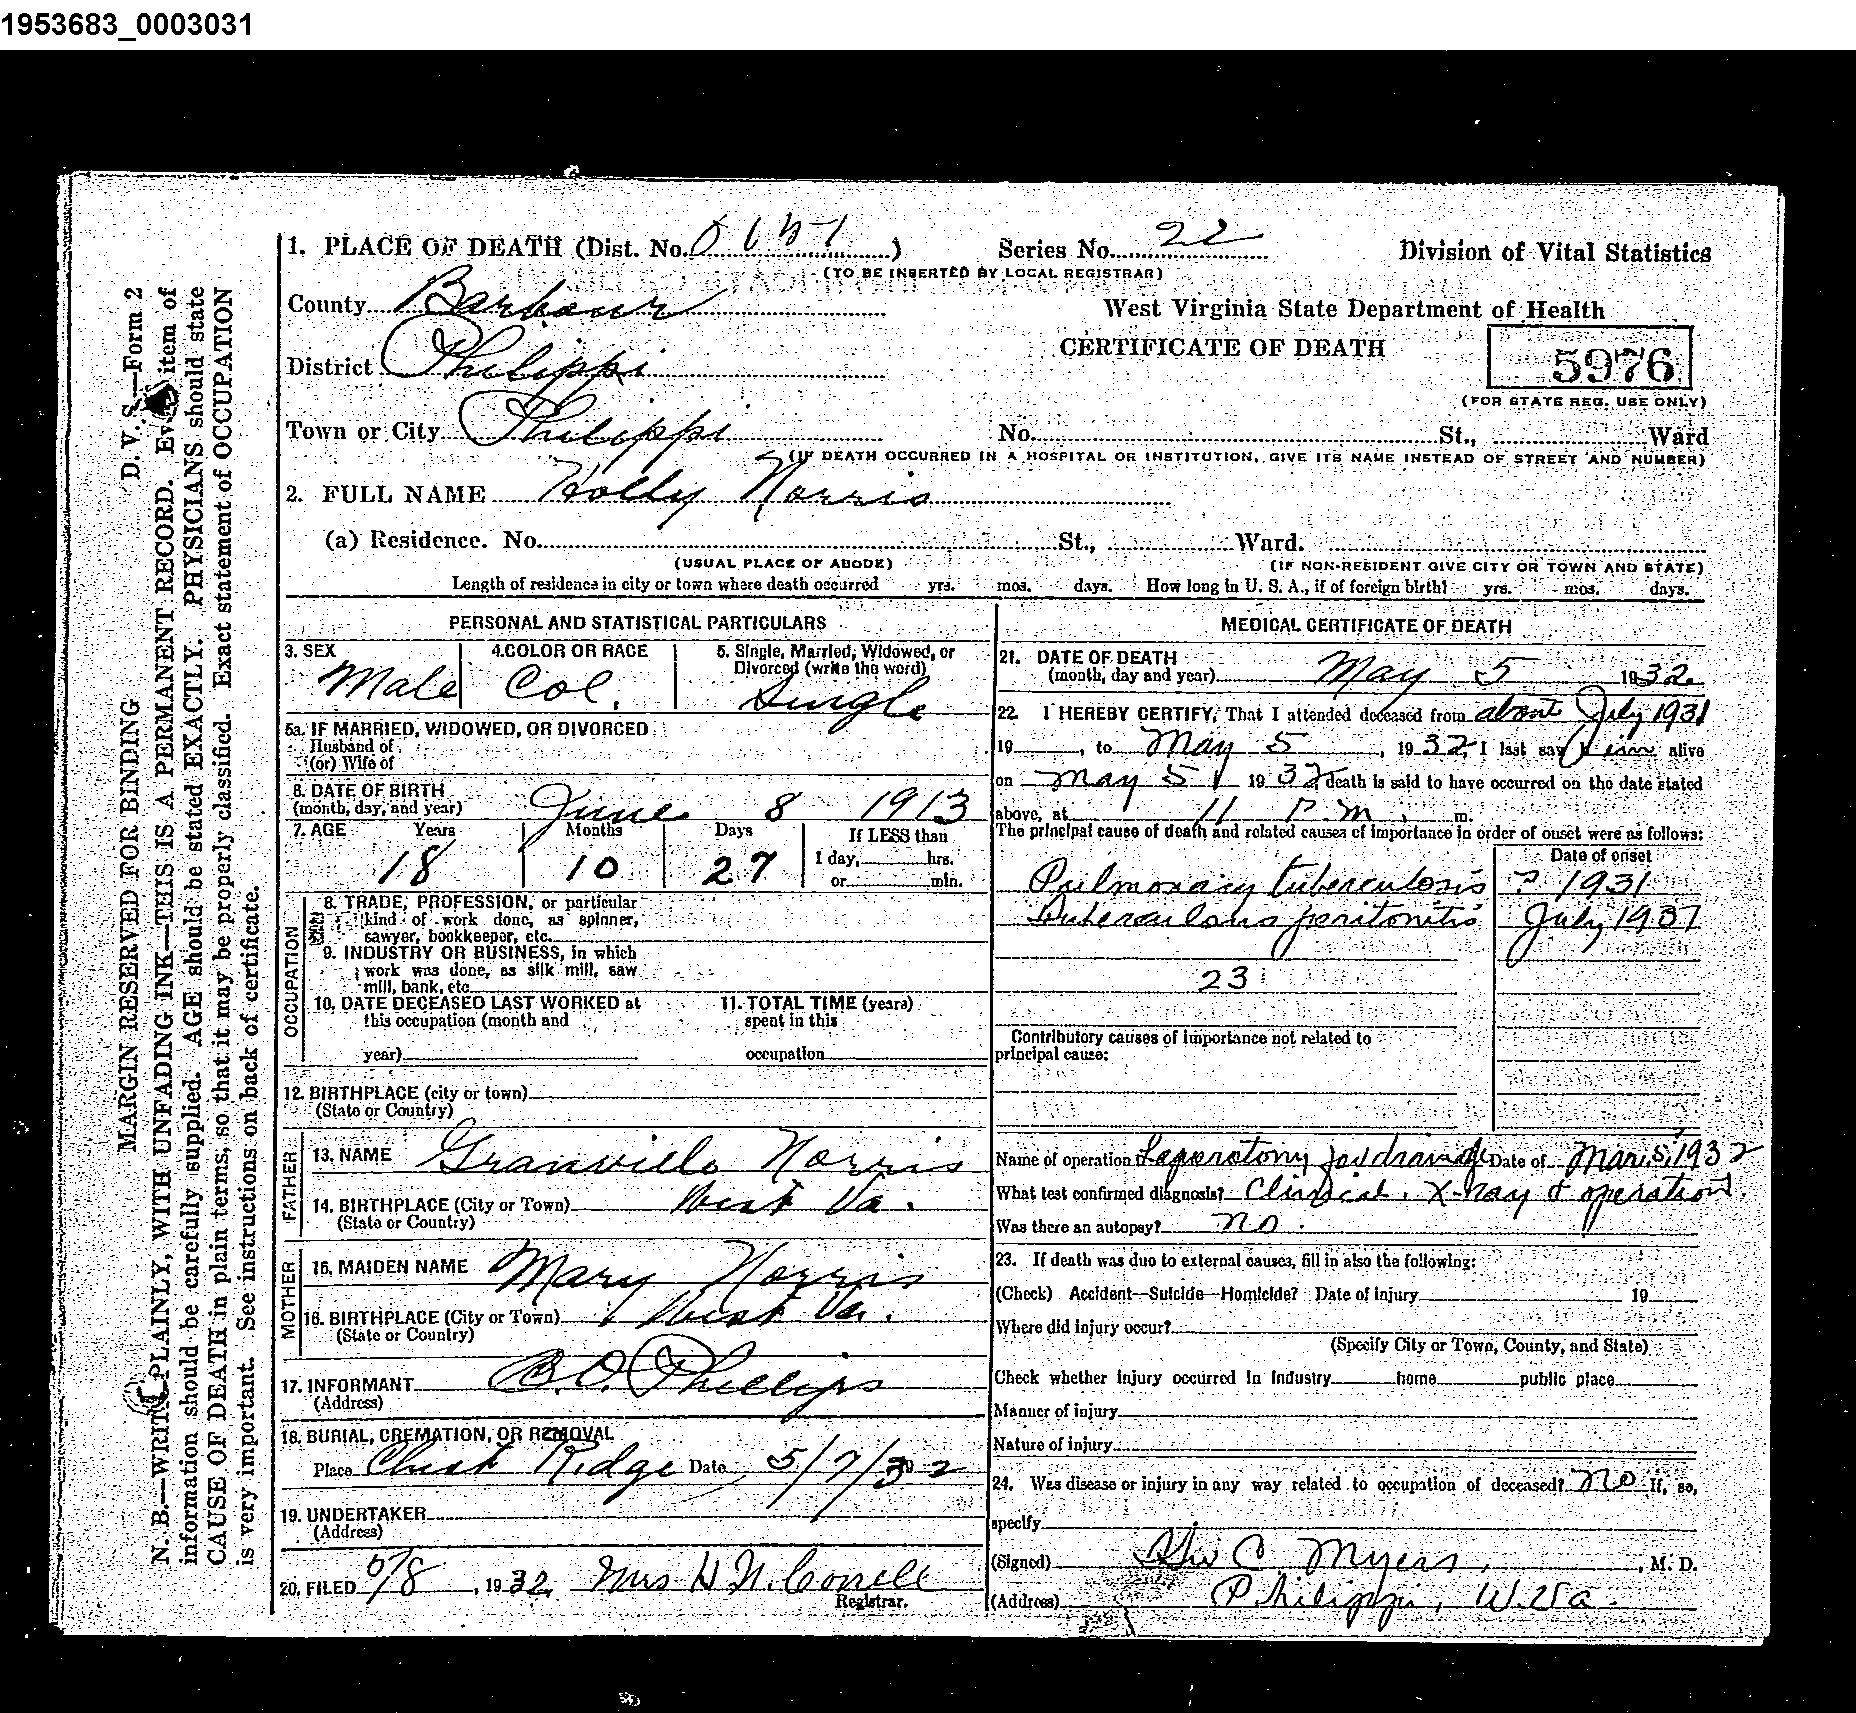 1953683_0003031
MARGIN RESERVED FOR BINDING D. V. S.—Form 2
N. B.—WRITE PLAINLY, WITH UNFADING INK—THIS IS A PERMANENT RECORD. Every item of
information should be carefully supplied. AGE should be stated EXACTLY. PHYSICIANS should state
CAUSE OF DEATH in plain terms, so that it may be properly classified. Exact statement of OCCUPATION
is very important. See instructions on back of certificate.
1. PLACE OF DEATH (Dist. No. ) Series No. 22 Division of Vital Statistics
(TO BE INSERTED BY LOCAL REGISTRAR)
County Barbour West Virginia State Department of Health
District Philippi CERTIFICATE OF DEATH 5976
(FOR STATE REG. USE ONLY)
Town or City Philippi No. St., Ward
(IF DEATH OCCURRED IN A HOSPITAL OR INSTITUTION, GIVE ITS NAME INSTEAD OF STREET AND NUMBER)
2. FULL NAME Holly Norris
(a) Residence. No. St., Ward.
(USUAL PLACE OF ABODE) (IF NON-RESIDENT GIVE CITY OR TOWN AND STATE)
Length of residence in city or town where death occurred yrs. mos. days. How long in U. S. A., if of foreign birth? yrs. mos. days.
PERSONAL AND STATISTICAL PARTICULARS
3. SEX 4. COLOR OR RACE 5. Single, Married, Widowed, or
Divorced (write the word)
Male Col. Single
5a. IF MARRIED, WIDOWED, OR DIVORCED
Husband of
(or) Wife of
6. DATE OF BIRTH
(month, day, and year) June 8 1913
7. AGE Years Months Days If LESS than
18 10 27 1 day, hrs.
or min.
OCCUPATION
8. TRADE, PROFESSION, or particular
kind of work done, as spinner,
sawyer, bookkeeper, etc.
9. INDUSTRY OR BUSINESS, in which
work was done, as silk mill, saw
mill, bank, etc.
10. DATE DECEASED LAST WORKED at 11. TOTAL TIME (years)
this occupation (month and spent in this
year) occupation
12. BIRTHPLACE (city or town)
(State or Country)
FATHER
13. NAME Granville Norris
14. BIRTHPLACE (City or Town) West Va.
(State or Country)
MOTHER
15. MAIDEN NAME Mary Norris
16. BIRTHPLACE (City or Town) West Va.
(State or Country)
17. INFORMANT B.O. Phillips
(Address)
18. BURIAL, CREMATION, OR REMOVAL
Place Ridge Date 5/7/32
19. UNDERTAKER
(Address)
20. FILED 5/8, 1932 Mrs
Registrar.
MEDICAL CERTIFICATE OF DEATH
21. DATE OF DEATH
(month, day and year) May 5 1932
22. I HEREBY CERTIFY, That I attended deceased from about July 1931
19 , to May 5, 1932, I last saw him alive
on May 5, 1932 death is said to have occurred on the date stated
above, at 11 P.m. m.
The principal cause of death and related causes of importance in order of onset were as follows:
Date of onset
Pulmonary tuberculosis ? 1931
Tuberculous peritonitis July 1931
23
Contributory causes of importance not related to
principal cause:
Name of operation Laparotomy for drainage Date of Mar. 5, 1932
What test confirmed diagnosis? Clinical. X-ray & operation.
Was there an autopsy? no.
23. If death was due to external causes, fill in also the following:
(Check) Accident—Suicide—Homicide? Date of injury 19
Where did injury occur?
(Specify City or Town, County, and State)
Check whether injury occurred in industry home public place
Manner of injury
Nature of injury
24. Was disease or injury in any way related to occupation of deceased? no If, so,
specify
(Signed) C Myers, M. D.
(Address) Philippi, W. Va.